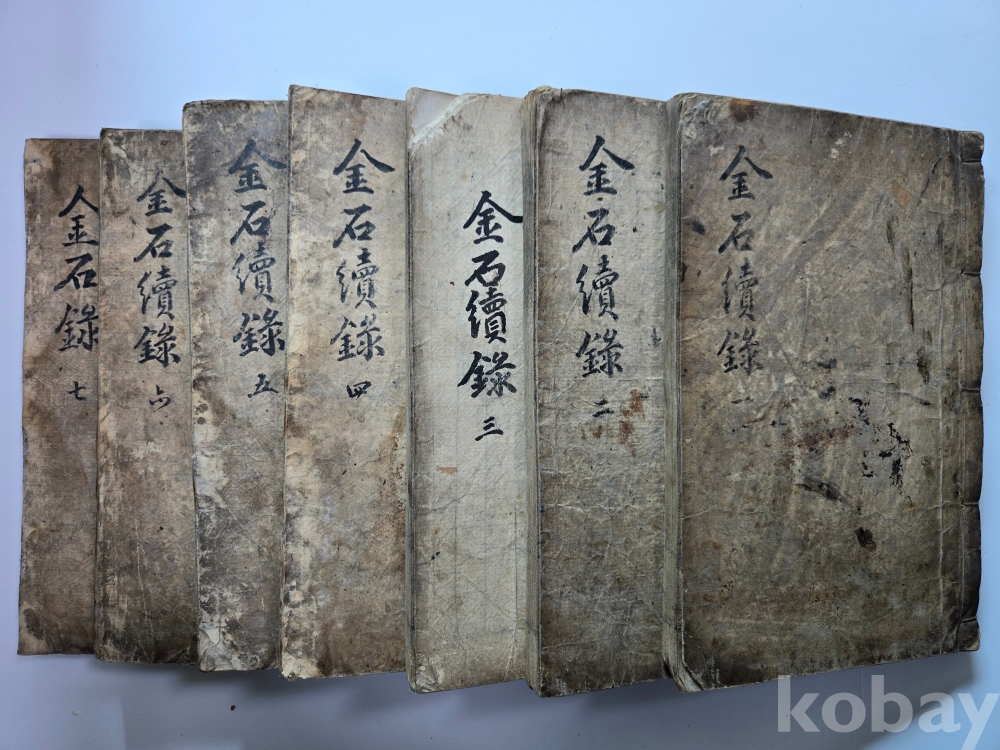 金石續錄 一
金石續錄 二
金石續錄 三
金石續錄 四
金石續錄 五
金石續錄 六
金石錄 七
kobay